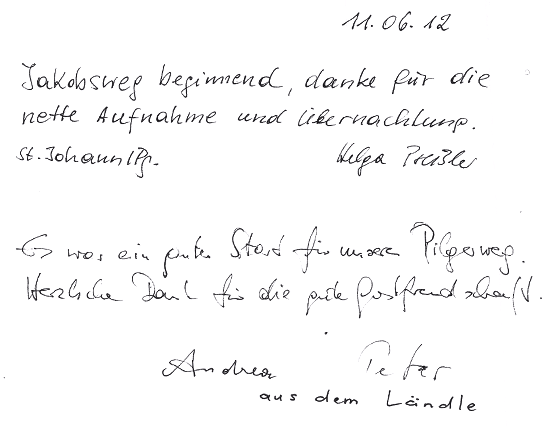 11.06.12
Jakobsweg beginnend, danke für die
nette Aufnahme und Übernachtung.
St. Johann/Pg. Helga
Es war ein guter Start für unseren Pilgerweg.
Herzlichen Dank für die gute Gastfreundschaft.
Andrea Peter
aus dem Ländle